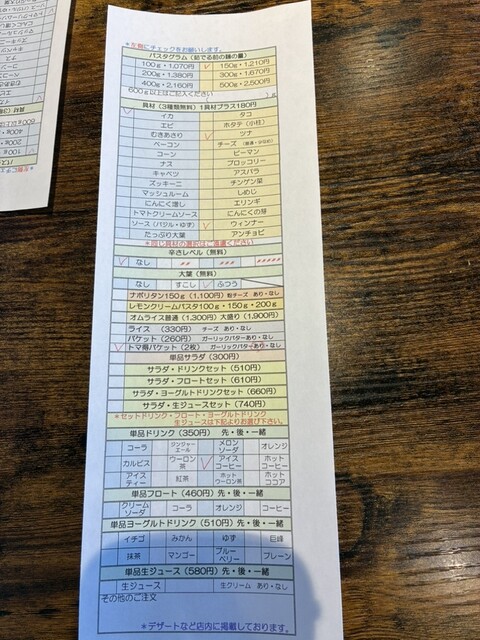 *左側にチェックをお願いします。
パスタグラム(茹でる前の麺の量)
100g・1,070円 ✓ 150g・1,210円
200g・1,380円 300g・1,670円
400g・2,160円 500g・2,500円
600g以上はご記入ください ( )g
具材(3種類無料)1具材プラス180円
✓ イカ タコ
エビ ホタテ(小柱)
むきあさり ✓ ツナ
ベーコン チーズ
コーン ピーマン
ナス ブロッコリー
キャベツ アスパラ
ズッキーニ チンゲン菜
マッシュルーム しめじ
にんにく増し エリンギ
トマトクリームソース にんにくの芽
ソース(バジル・ゆず) ✓ ウィンナー
たっぷり大葉 アンチョビ
辛さレベル(無料)
✓ なし
大葉(無料)
なし すこし ✓ ふつう
ナポリタン150g(1,100円)粉チーズ あり・なし
レモンクリームパスタ100g・150g・200g
オムライス普通(1,300円)大盛り(1,900円)
ライス (330円) チーズ あり・なし
バケット(260円) ガーリックバターあり・なし
✓ トマ得バケット(2枚) ガーリックバターあり・なし
単品サラダ(300円)
サラダ・ドリンクセット(510円)
サラダ・フロートセット(610円)
サラダ・ヨーグルトドリンクセット(660円)
サラダ・生ジュースセット(740円)
*セットドリンク・フロート・ヨーグルトドリンク
生ジュースは下記よりお選び下さい。
単品ドリンク(350円) 先・後・一緒
コーラ ジンジャーエール メロンソーダ オレンジ
カルピス ウーロン茶 ✓ アイスコーヒー ホットコーヒー
アイスティー 紅茶 ホットウーロン茶 ホットココア
単品フロート(460円)先・後・一緒
クリームソーダ コーラ オレンジ コーヒー
単品ヨーグルトドリンク(510円)先・後・一緒
イチゴ みかん ゆず 巨峰
抹茶 マンゴー ブルーベリー プレーン
単品生ジュース(580円)先・後・一緒
生ジュース 生クリーム あり・なし
その他のご注文
*デザートなど店内に掲載しております。